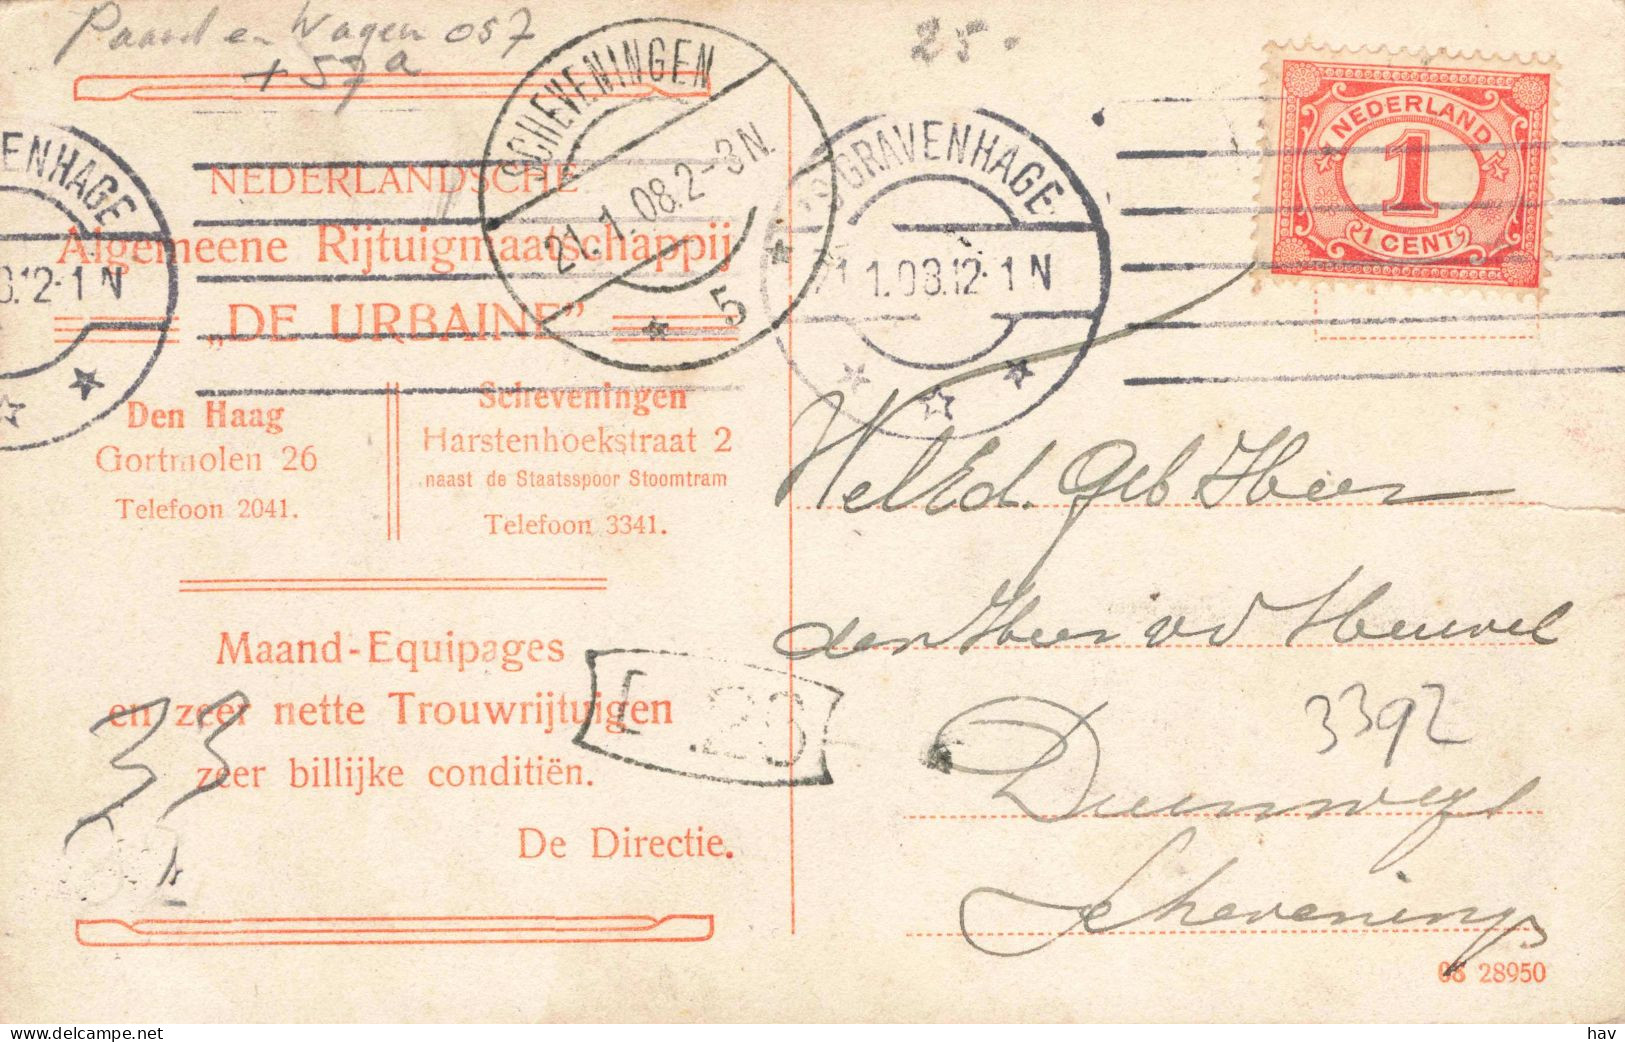 Paard en Wagen 057
+ 57a
25.
NEDERLAND
1
1 CENT
SCHEVENINGEN
21.1.08.2-3N.
5
'S GRAVENHAGE
21.1.08.12-1N
ENHAGE
8.12-1N
NEDERLANDSCHE
Algemeene Rijtuigmaatschappij
„DE URBAINE”
Den Haag
Gortmolen 26
Telefoon 2041.
Scheveningen
Harstenhoekstraat 2
naast de Staatsspoor Stoomtram
Telefoon 3341.
Maand-Equipages
en zeer nette Trouwrijtuigen
zeer billijke conditiën.
De Directie.
33
WelEd. Geb Heer
den Heer v d Heuvel
3392
Duinweg
Scheveningen
08 28950
hav